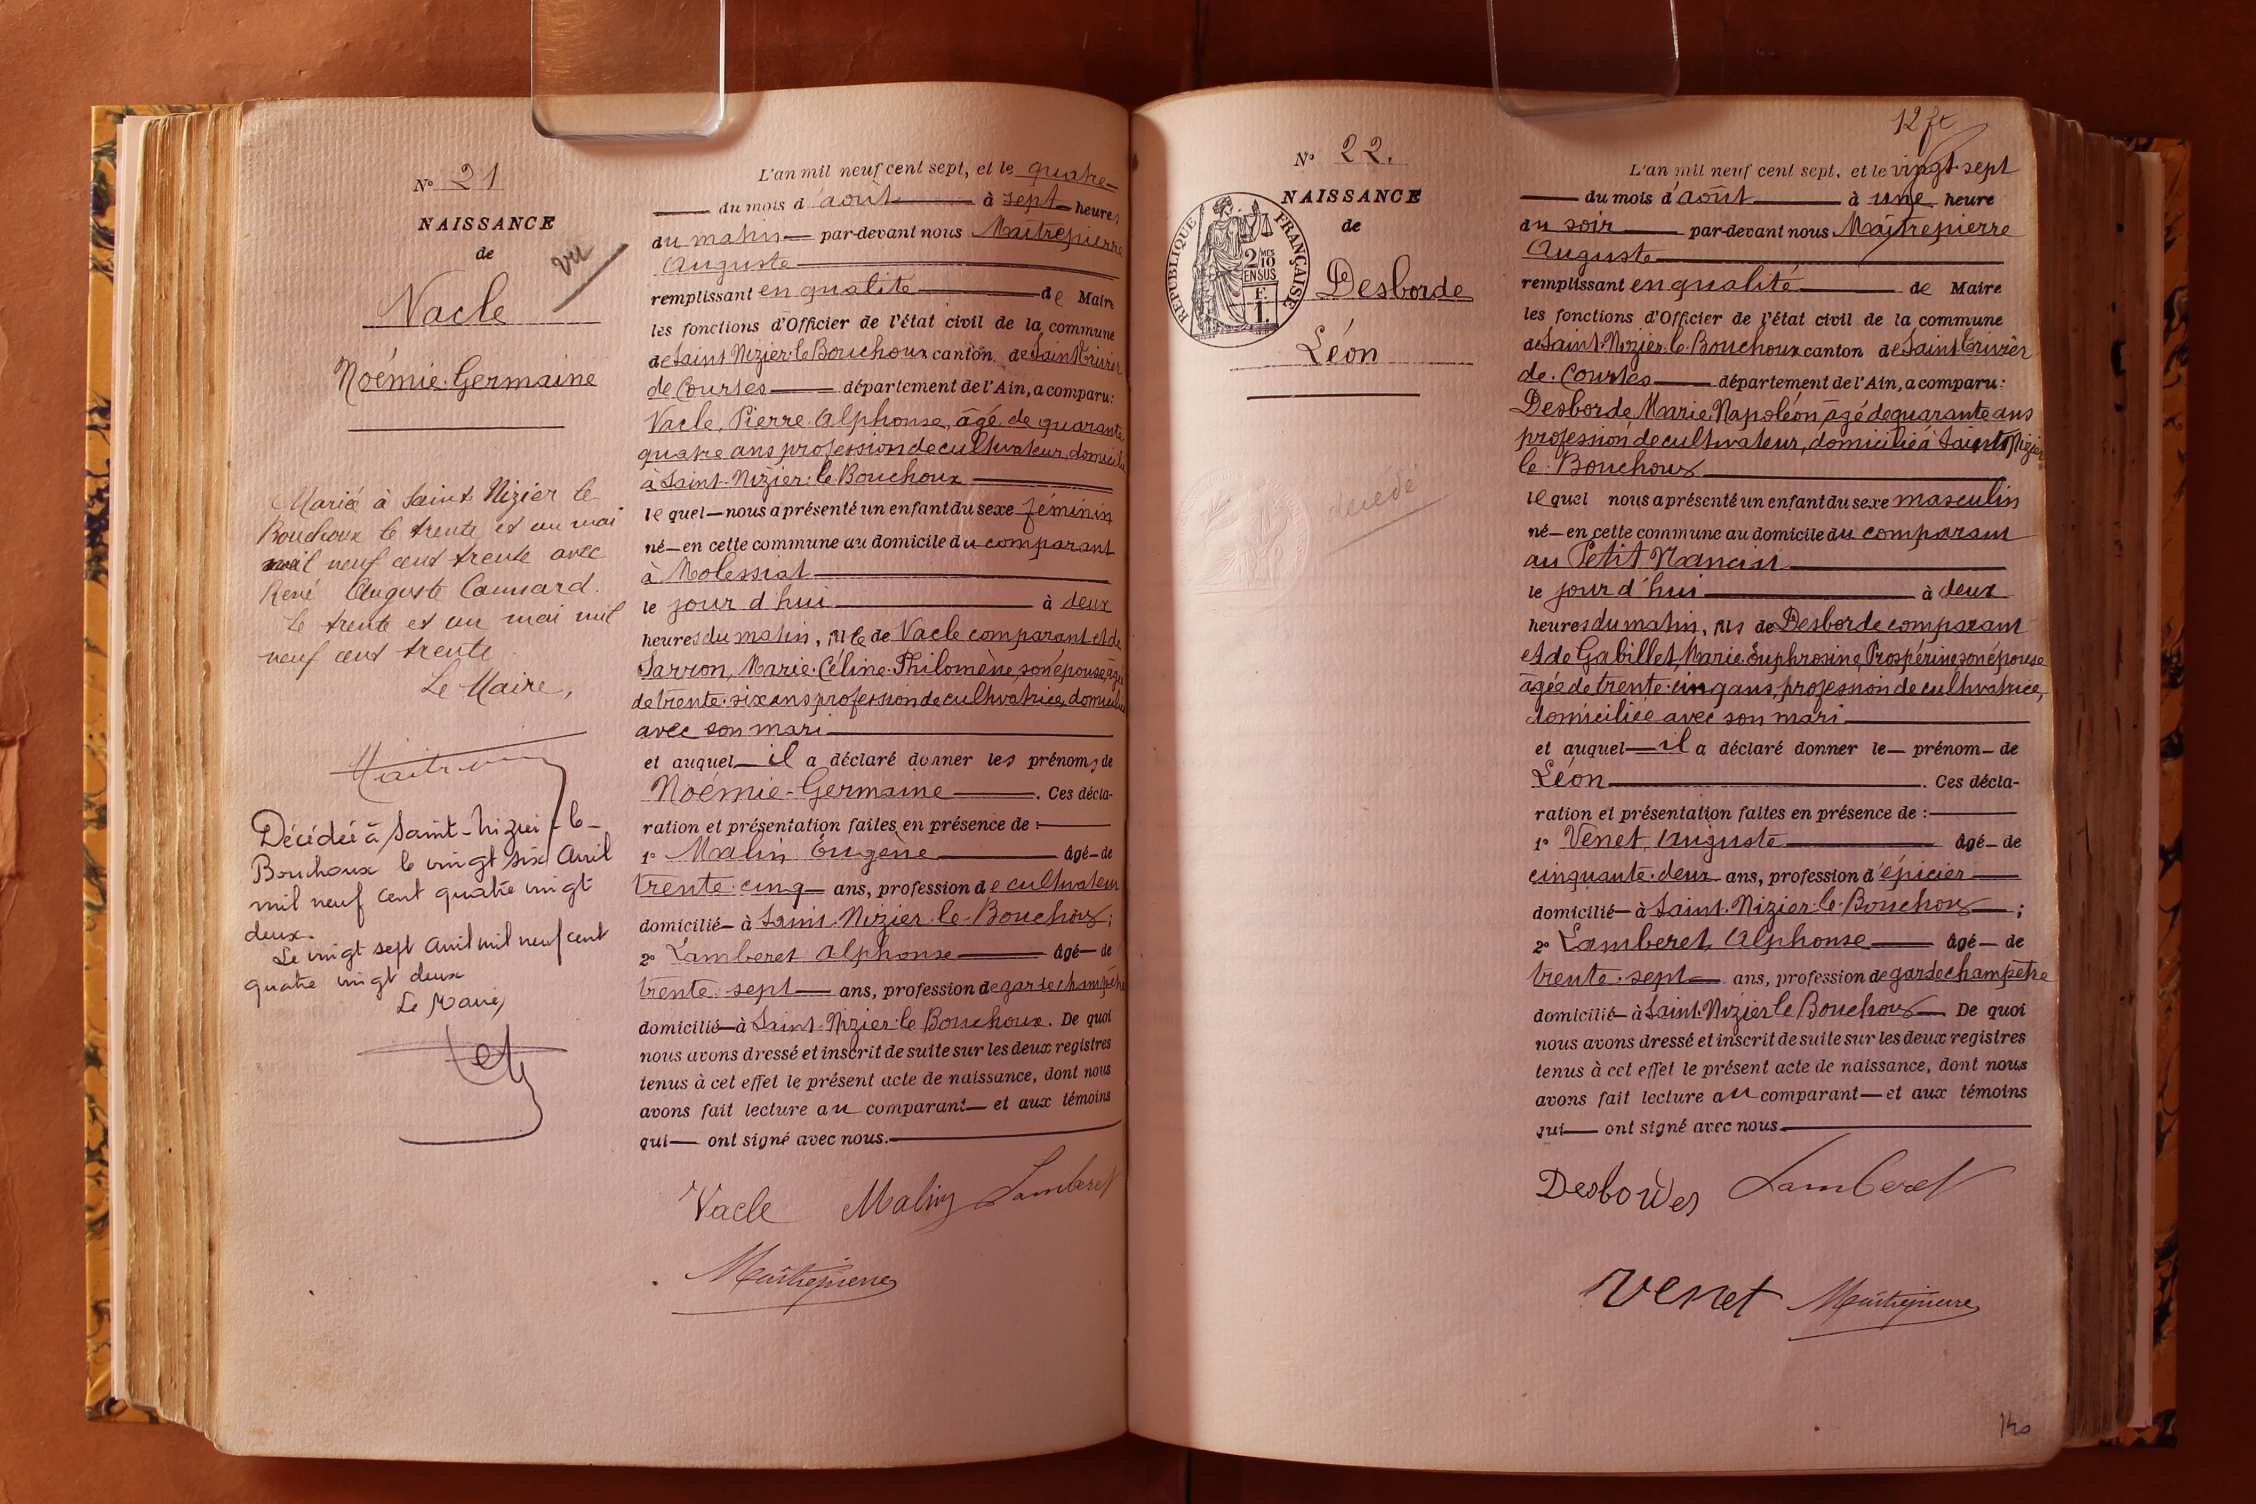 N° 21
NAISSANCE
de
vu
Vacle
Noémie-Germaine
Mariée à Saint Nizier le
Bouchoux le trente et un mai
mil neuf cent trente avec
René Auguste
Le trente et un mai mil
neuf cent trente.
Le Maire,
Décédée à Saint-Nizier-le-
Bouchoux le vingt six Avril
mil neuf cent quatre vingt
deux.
Le vingt sept Avril mil neuf cent
quatre vingt deux
Le Maire,
L'an mil neuf cent sept, et le quatre
du mois d'août à sept heures
du matin par-devant nous Maîtrepierre
Auguste
remplissant en qualité de Maire
les fonctions d'Officier de l'état civil de la commune
de Saint-Nizier-le-Bouchoux canton de Saint Trivier
de Courtes département de l'Ain, a comparu:
Vacle, Pierre Alphonse, âgé de quarante
quatre ans profession de cultivateur, domicilié
à Saint-Nizier-le-Bouchoux
lequel nous a présenté un enfant du sexe féminin
né en cette commune au domicile du comparant
à Molessiat
le jour d'hui à deux
heures du matin, fille de Vacle comparant et de
Sarron, Marie-Céline-Philomène, son épouse, âgée
de trente-six ans profession de cultivatrice, domiciliée
avec son mari
et auquel il a déclaré donner les prénoms de
Noémie-Germaine. Ces décla-
ration et présentation faites en présence de :
1° Malin Eugène âgé de
trente-cinq ans, profession de cultivateur
domicilié à Saint-Nizier-le-Bouchoux;
2° Lamberet Alphonse âgé de
trente-sept ans, profession de garde champêtre
domicilié à Saint-Nizier-le-Bouchoux. De quoi
nous avons dressé et inscrit de suite sur les deux registres
tenus à cet effet le présent acte de naissance, dont nous
avons fait lecture au comparant et aux témoins
qui ont signé avec nous.
Vacle Malin Lamberet
Maîtrepierre
N° 22.
NAISSANCE
de
RÉPUBLIQUE FRANÇAISE
2/10 MES
EN SUS
F.
1.
Desborde
Léon
décédé
12 ft
L'an mil neuf cent sept, et le vingt-sept
du mois d'août à une heure
du soir par-devant nous Maîtrepierre
Auguste
remplissant en qualité de Maire
les fonctions d'Officier de l'état civil de la commune
de Saint-Nizier-le-Bouchoux canton de Saint Trivier
de Courtes département de l'Ain, a comparu:
Desborde, Marie, Napoléon, âgé de quarante ans
profession de cultivateur, domicilié à Saint Nizier
le Bouchoux
lequel nous a présenté un enfant du sexe masculin
né en cette commune au domicile du comparant
au Petit Mancin
le jour d'hui à deux
heures du matin, fils de Desborde comparant
et de Gabillet, Marie-Euphrosine, Prospérine son épouse
âgée de trente-cinq ans, profession de cultivatrice,
domiciliée avec son mari
et auquel il a déclaré donner le prénom de
Léon. Ces décla-
ration et présentation faites en présence de :
1° Venet, Auguste âgé de
cinquante-deux ans, profession d'épicier
domicilié à Saint-Nizier-le-Bouchoux ;
2° Lamberet, Alphonse âgé de
trente-sept ans, profession de garde champêtre
domicilié à Saint-Nizier le Bouchoux De quoi
nous avons dressé et inscrit de suite sur les deux registres
tenus à cet effet le présent acte de naissance, dont nous
avons fait lecture au comparant et aux témoins
qui ont signé avec nous
Desbordes Lamberet
Venet Maîtrepierre